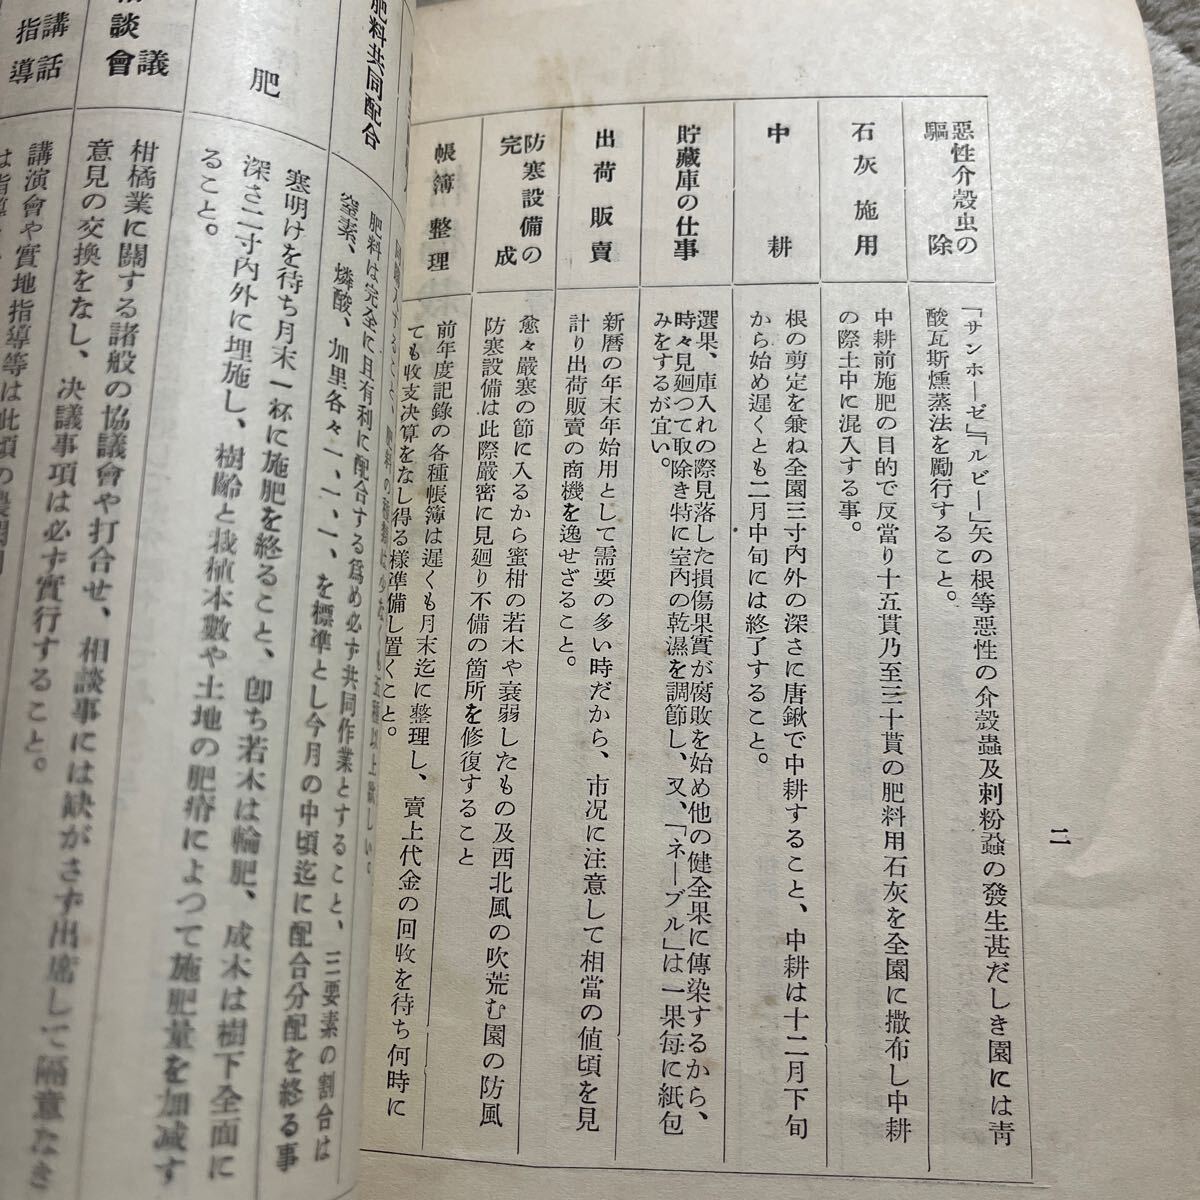 二
惡性介殼虫の
驅除
「サンホーゼ」「ルビー」矢の根等惡性の介殼蟲及刺粉蝨の發生甚だしき園には靑
酸瓦斯燻蒸法を勵行すること。
石灰施用
中耕前施肥の目的で反當り十五貫乃至三十貫の肥料用石灰を全園に撒布し中耕
の際土中に混入する事。
中耕
根の剪定を兼ね全園三寸內外の深さに唐鍬で中耕すること、中耕は十二月下旬
から始め遲くとも二月中旬には終了すること。
貯藏庫の仕事
選果、庫入れの際見落した損傷果實が腐敗を始め他の健全果に傳染するから、
時々見廻つて取除き特に室內の乾濕を調節し、又、「ネーブル」は一果每に紙包
みをするが宜い。
出荷販賣
新曆の年末年始用として需要の多い時だから、市況に注意して相當の値頃を見
計り出荷販賣の商機を逸せざること。
防寒設備の
完成
愈々嚴寒の節に入るから蜜柑の若木や衰弱したもの及西北風の吹荒む園の防風
防寒設備は此際嚴密に見廻り不備の箇所を修復すること
帳簿整理
前年度記錄の各種帳簿は遲くも月末迄に整理し、賣上代金の回收を待ち何時に
ても收支決算をなし得る樣準備し置くこと。
肥料共同配合
肥料は完全に且有利に配合する爲め必ず共同作業とすること、三要素の割合は
窒素、燐酸、加里各々一、一、一、を標準とし今月の中頃迄に配合分配を終る事
肥
寒明けを待ち月末一杯に施肥を終ること、卽ち若木は輪肥、成木は樹下全面に
深さ二寸內外に埋施し、樹齡と栽植本數や土地の肥瘠によつて施肥量を加減す
ること。
議
談會
柑橘業に關する諸般の協議會や打合せ、相談事には缺がさず出席して隔意なき
意見の交換をなし、決議事項は必ず實行すること。
講話
指導
講演會や實地指導等は此頃の